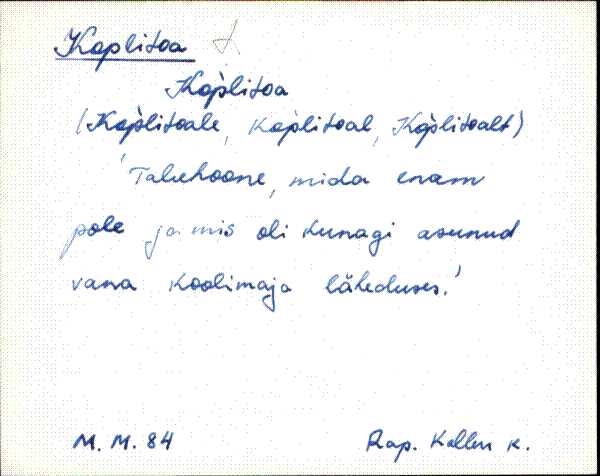 Kaplitoa
Kap̀litoa
(Kap̀litoale, Kap̀litoal, Kap̀litoalt)
'Taluhoone, mida enam
pole ja mis oli kunagi asunud
vana koolimaja läheduses.'
M. M. 84 Rap. k.